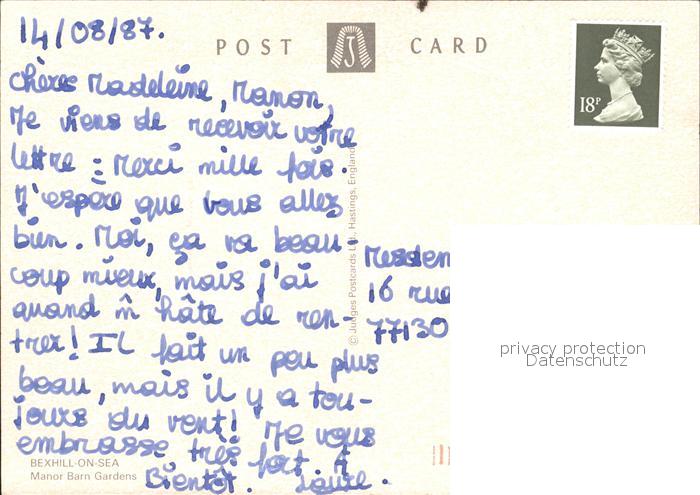 14/08/87.
POST CARD
18P
Chères Madeleine, Manon,
Je viens de recevoir votre
lettre : Merci mille fois.
J'espère que vous allez
bien. Moi, ça va beau-
coup mieux, mais j'ai
quand m̂ hâte de ren-
trer! IL fait un peu plus
beau, mais il y a tou-
jours du vent! Je vous
embrasse très fort. A
Bientôt. Laure.
© Judges Postcards Ltd., Hastings, England
Mesdem
16 rue
77130
privacy protection
Datenschutz
BEXHILL-ON-SEA
Manor Barn Gardens